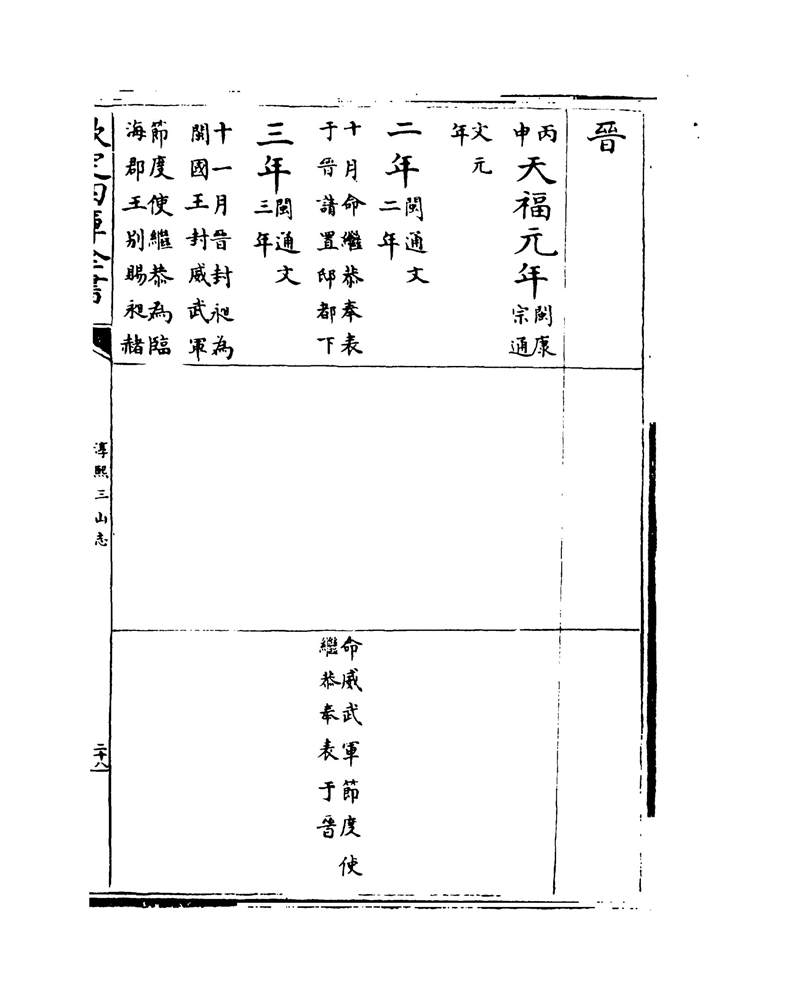 晉
丙申天福元年閩康宗通
文元年
二年閩通文二年
十月命繼恭奉表
于晉請置邸都下
三年閩通文三年
十一月晉封昶為
閩國王封威武軍
節度使繼恭為臨
海郡王别賜昶赭
命威武軍節度使
繼恭奉表于晉
欽定四庫全書
淳熙三山志
二十八